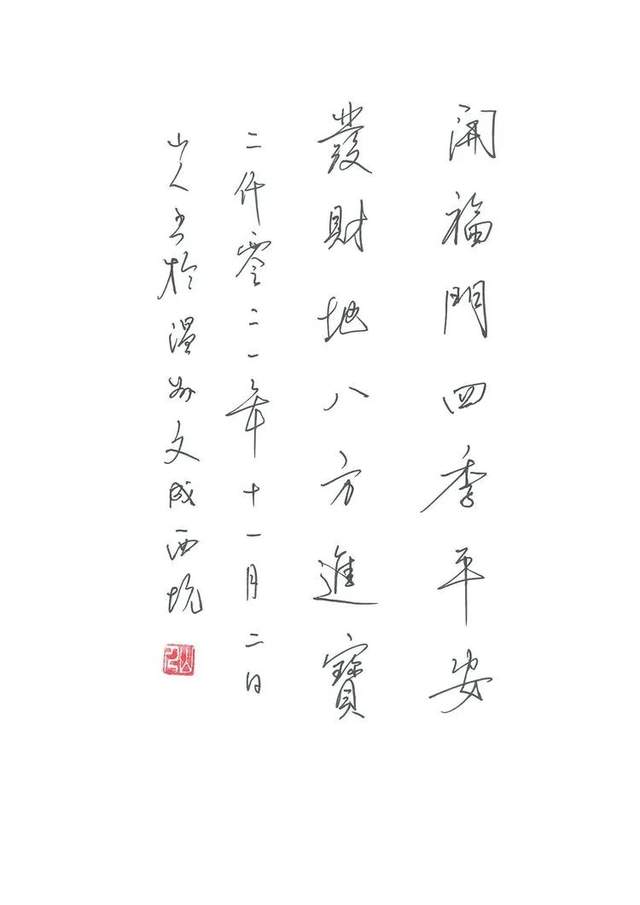 開福門四季平安
發財地八方進寶
二仟零二一年十一月二日
山人书於温州文成西坑
山人